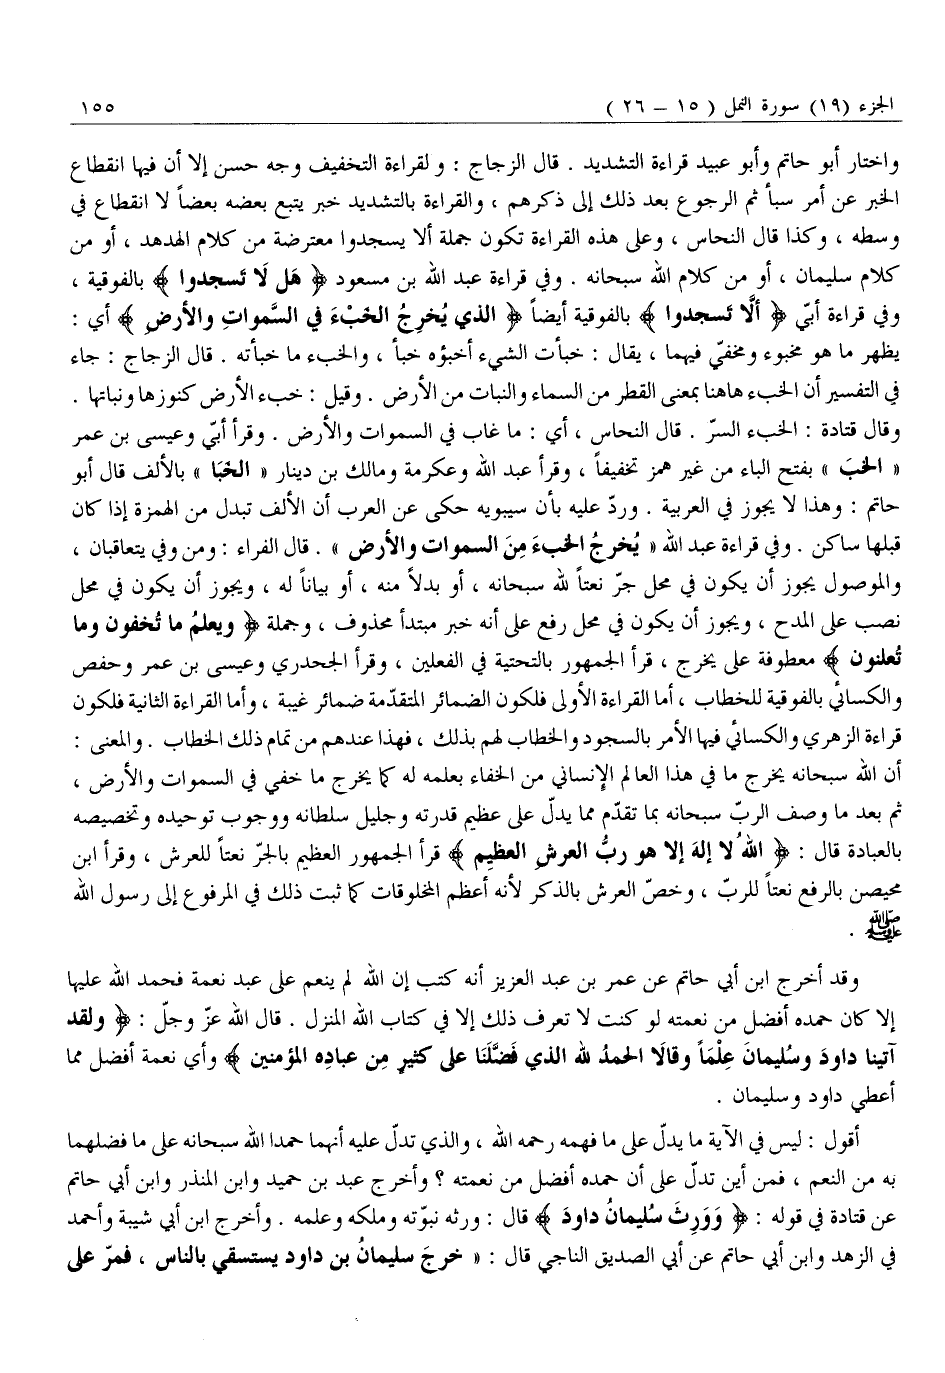 الجزء (١٩) سورة النمل ( ١٥ – ٢٦ ) ١٥٥
واختار أبو حاتم وأبو عبيد قراءة التشديد . قال الزجاج : ولقراءة التخفيف وجه حسن إلا أن فيها انقطاع
الخبر عن أمر سبأ ثم الرجوع بعد ذلك إلى ذكرهم ، والقراءة بالتشديد خبر يتبع بعضه بعضاً لا انقطاع في
وسطه ، وكذا قال النحاس ، وعلى هذه القراءة تكون جملة ألا يسجدوا معترضة من كلام الهدهد ، أو من
كلام سليمان ، أو من كلام الله سبحانه . وفي قراءة عبد الله بن مسعود ﴿ هَل لَا تَسجدوا ﴾ بالفوقية ،
وفي قراءة أبيّ ﴿ ألَّا تَسجدوا ﴾ بالفوقية أيضاً ﴿ الذي يُخرِجُ الخَبْءَ في السَّمواتِ والأرضِ ﴾ أي :
يظهر ما هو مخبوء ومخفيّ فيهما ، يقال : خبأت الشيء أخبؤه خبأ ، والخبء ما خبأته . قال الزجاج : جاء
في التفسير أن الخبء هاهنا بمعنى القطر من السماء والنبات من الأرض . وقيل : خبء الأرض كنوزها ونباتها .
وقال قتادة : الخبء السرّ . قال النحاس ، أي : ما غاب في السموات والأرض . وقرأ أبيّ وعيسى بن عمر
« الخبَ » بفتح الباء من غير همز تخفيفاً ، وقرأ عبد الله وعكرمة ومالك بن دينار « الخبَا » بالألف قال أبو
حاتم : وهذا لا يجوز في العربية . وردّ عليه بأن سيبويه حكى عن العرب أن الألف تبدل من الهمزة إذا كان
قبلها ساكن . وفي قراءة عبد الله « يُخرجُ الخبءَ مِنَ السموات والأرض » . قال الفراء : ومن وفي يتعاقبان ،
والموصول يجوز أن يكون في محل جرّ نعتاً لله سبحانه ، أو بدلاً منه ، أو بياناً له ، ويجوز أن يكون في محل
نصب على المدح ، ويجوز أن يكون في محل رفع على أنه خبر مبتدأ محذوف ، وجملة ﴿ ويعلمُ ما تُخفون وما
تُعلنون ﴾ معطوفة على يخرج ، قرأ الجمهور بالتحتية في الفعلين ، وقرأ الجحدري وعيسى بن عمر وحفص
والكسائي بالفوقية للخطاب ، أما القراءة الأولى فلكون الضمائر المتقدّمة ضمائر غيبة ، وأما القراءة الثانية فلكون
قراءة الزهري والكسائي فيها الأمر بالسجود والخطاب لهم بذلك ، فهذا عندهم من تمام ذلك الخطاب . والمعنى :
أن الله سبحانه يخرج ما في هذا العالم الإنساني من الخفاء بعلمه له كما يخرج ما خفي في السموات والأرض ،
ثم بعد ما وصف الربّ سبحانه بما تقدّم مما يدلّ على عظيم قدرته وجليل سلطانه ووجوب توحيده وتخصيصه
بالعبادة قال : ﴿ اللهُ لا إلهَ إلا هو ربُّ العرشِ العظيمِ ﴾ قرأ الجمهور العظيم بالجرّ نعتاً للعرش ، وقرأ ابن
محيصن بالرفع نعتاً للربّ ، وخصّ العرش بالذكر لأنه أعظم المخلوقات كما ثبت ذلك في المرفوع إلى رسول الله
ﷺ .
وقد أخرج ابن أبي حاتم عن عمر بن عبد العزيز أنه كتب إن الله لم ينعم على عبد نعمة فحمد الله عليها
إلا كان حمده أفضل من نعمته لو كنت لا تعرف ذلك إلا في كتاب الله المنزل . قال الله عزّ وجلّ : ﴿ ولقد
آتينا داودَ وسُليمانَ عِلْمَاً وقالَا الحمدُ لله الذي فَضَّلَنَا على كثيرٍ مِن عبادِه المؤمنين ﴾ وأي نعمة أفضل مما
أعطي داود وسليمان .
أقول : ليس في الآية ما يدلّ على ما فهمه رحمه الله ، والذي تدلّ عليه أنهما حمدا الله سبحانه على ما فضلهما
به من النعم ، فمن أين تدلّ على أن حمده أفضل من نعمته ؟ وأخرج عبد بن حميد وابن المنذر وابن أبي حاتم
عن قتادة في قوله : ﴿ وَوَرِثَ سُليمانُ داودَ ﴾ قال : ورثه نبوّته وملكه وعلمه . وأخرج ابن أبي شيبة وأحمد
في الزهد وابن أبي حاتم عن أبي الصديق الناجي قال : « خرجَ سليمانُ بن داود يستسقي بالناس ، فمرّ على